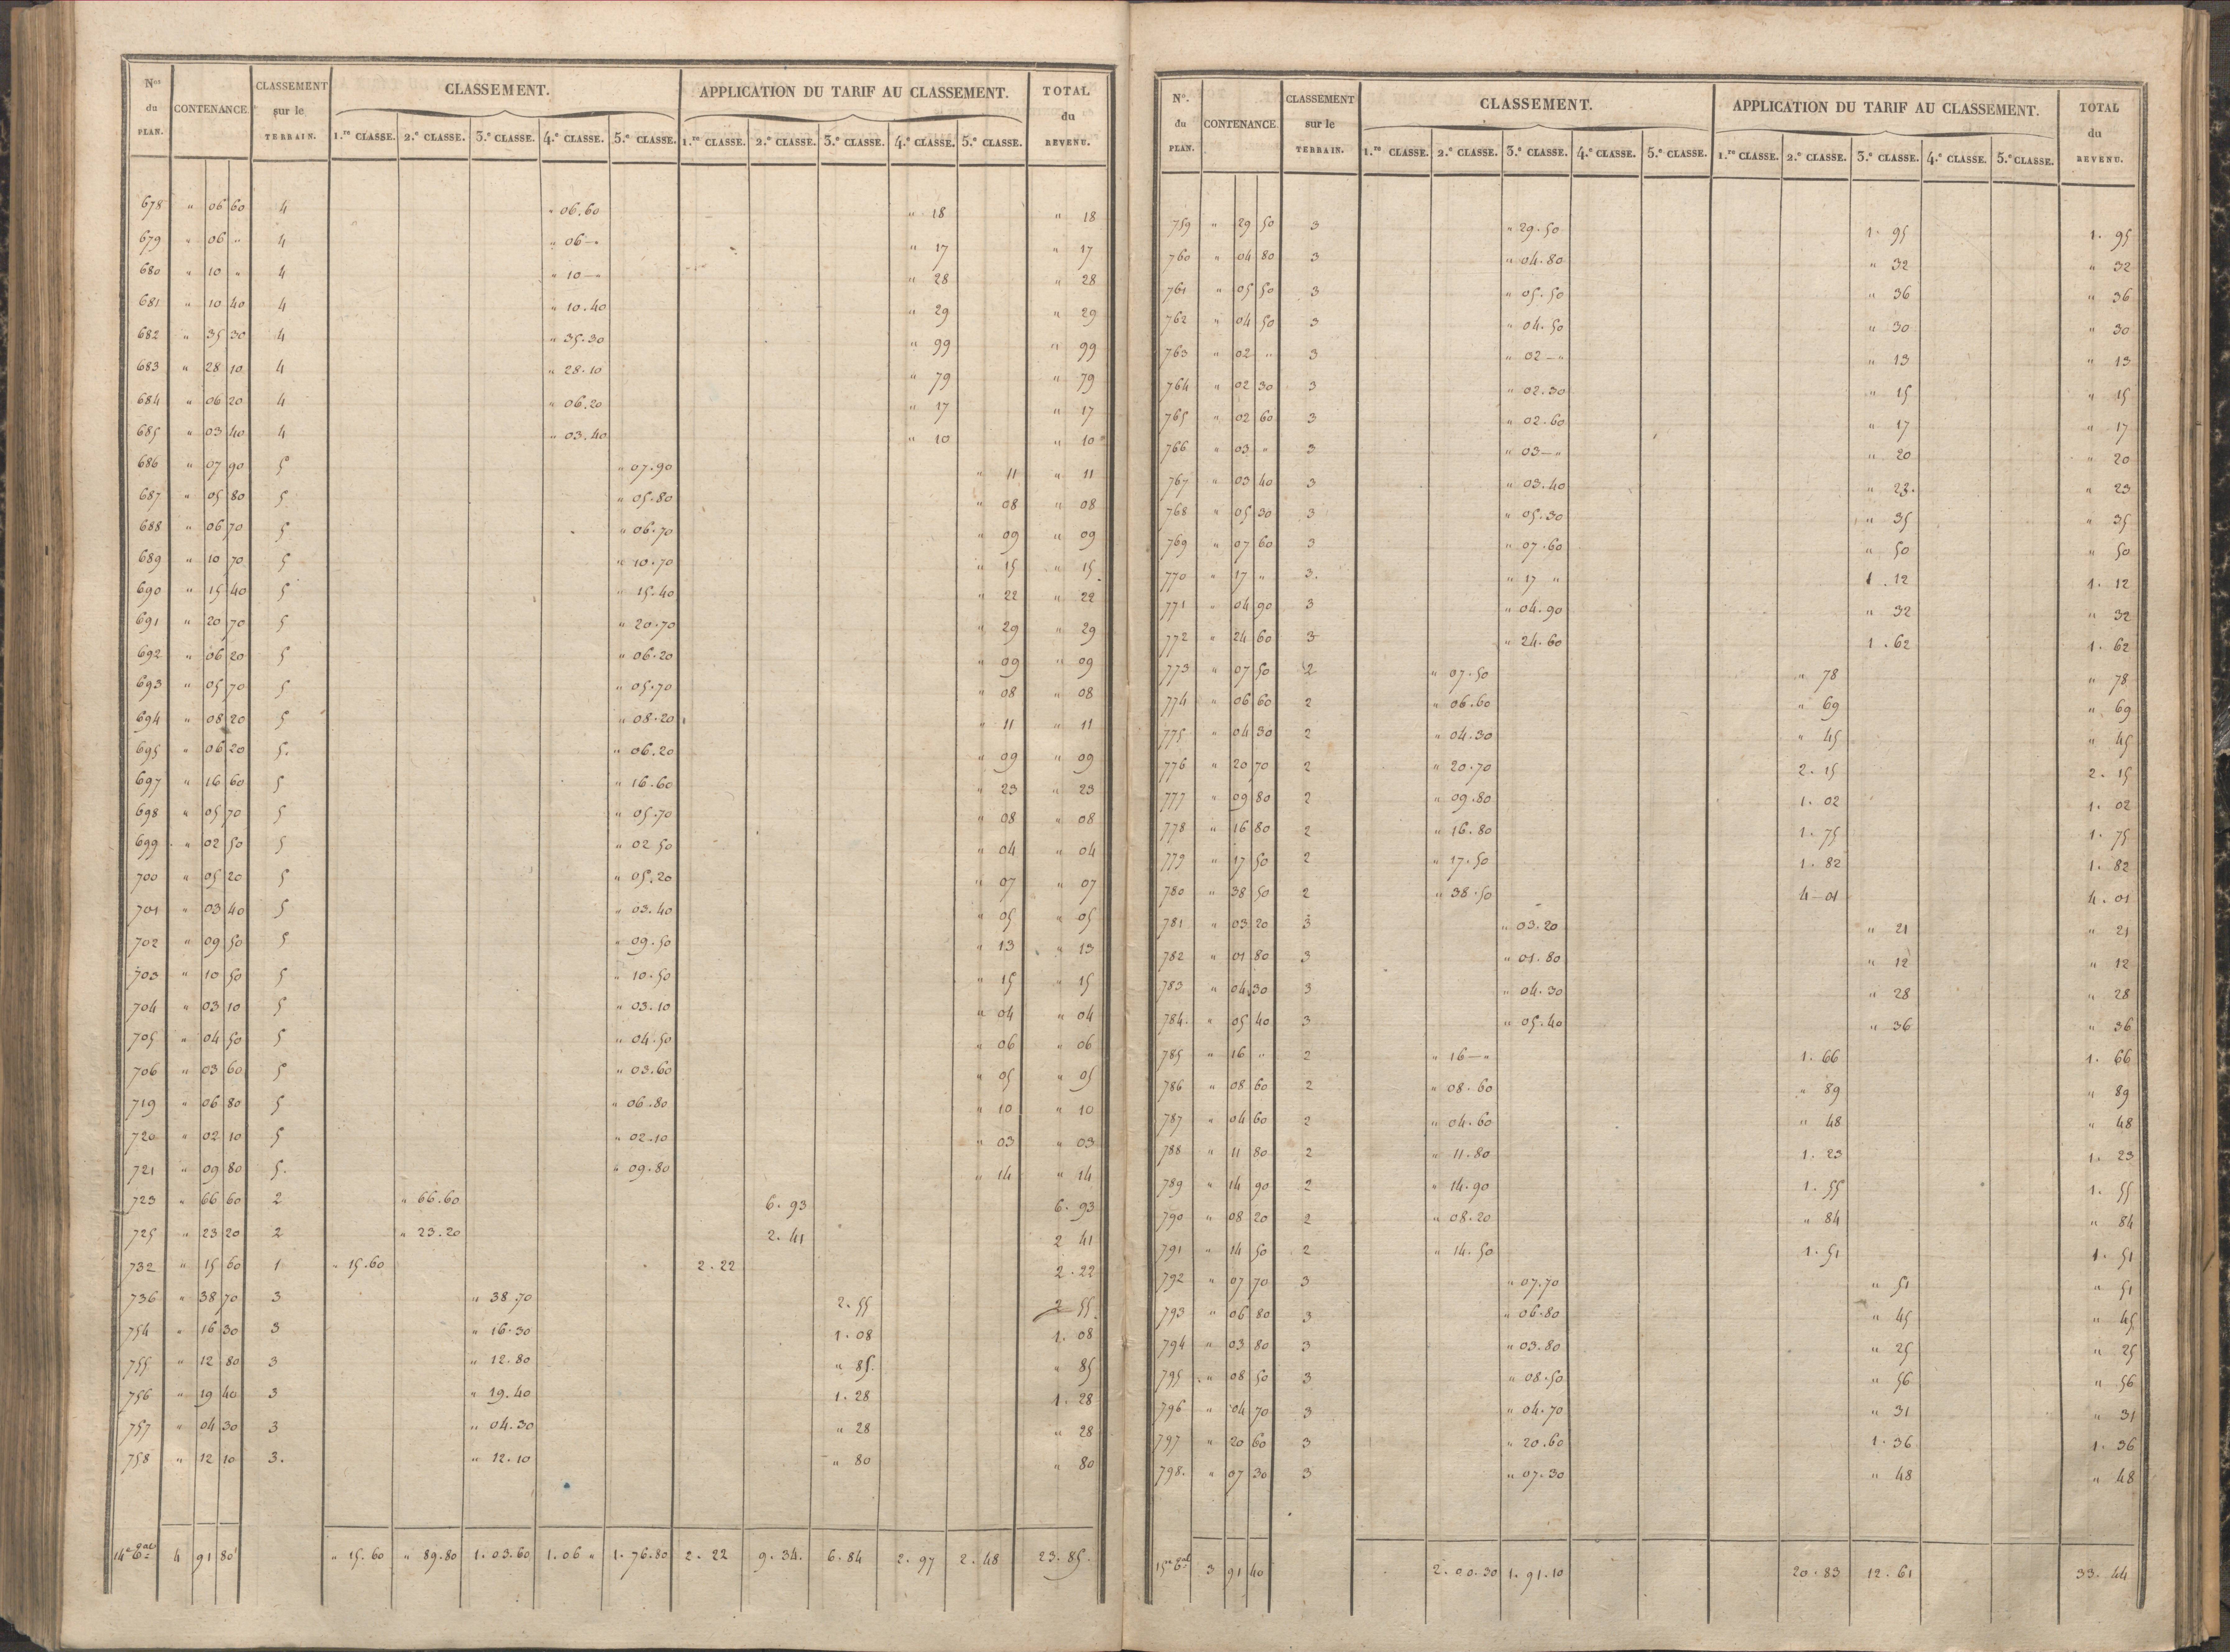 Nos du PLAN. CONTENANCE CLASSEMENT sur le TERRAIN. CLASSEMENT. APPLICATION DU TARIF AU CLASSEMENT. TOTAL du REVENU.
1.re CLASSE. 2.e CLASSE. 3.e CLASSE. 4.e CLASSE. 5.e CLASSE. 1.re CLASSE. 2.e CLASSE. 3.e CLASSE. 4.e CLASSE. 5.e CLASSE.
678 " 06 60 4 " 06.60 " 18 " 18
679 " 06 " 4 " 06 — " " 17 " 17
680 " 10 " 4 " 10 — " " 28 " 28
681 " 10 40 4 " 10.40 " 29 " 29
682 " 35 30 4 " 35.30 " 99 " 99
683 " 28 10 4 " 28.10 " 79 " 79
684 " 06 20 4 " 06.20 " 17 " 17
685 " 03 40 4 " 03.40 " 10 " 10
686 " 07 90 5 " 07.90 " 11 " 11
687 " 05 80 5 " 05.80 " 08 " 08
688 " 06 70 5 " 06.70 " 09 " 09
689 " 10 70 5 " 10.70 " 15 " 15
690 " 15 40 5 " 15.40 " 22 " 22
691 " 20 70 5 " 20.70 " 29 " 29
692 " 06 20 5 " 06.20 " 09 " 09
693 " 05 70 5 " 05.70 " 08 " 08
694 " 08 20 5 " 08.20 " 11 " 11
695 " 06 20 5. " 06.20 " 09 " 09
697 " 16 60 5 " 16.60 " 23 " 23
698 " 05 70 5 " 05.70 " 08 " 08
699 " 02 50 5 " 02 50 " 04 " 04
700 " 05 20 5 " 05.20 " 07 " 07
701 " 03 40 5 " 03.40 " 05 " 05
702 " 09 50 5 " 09.50 " 13 " 13
703 " 10 50 5 " 10.50 " 15 " 15
704 " 03 10 5 " 03.10 " 04 " 04
705 " 04 50 5 " 04.50 " 06 " 06
706 " 03 60 5 " 03.60 " 05 " 05
719 " 06 80 5 " 06.80 " 10 " 10
720 " 02 10 5 " 02.10 " 03 " 03
721 " 09 80 5. " 09.80 " 14 " 14
723 " 66 60 2 " 66.60 6. 93 6. 93
725 " 23 20 2 " 23.20 2. 41 2 41
732 " 15 60 1 " 15.60 2.22 2.22
736 " 38 70 3 " 38.70 2.55 2 55
754 " 16 30 3 " 16.30 1.08 1. 08
755 " 12 80 3 " 12.80 " 85. " 85
756 " 19 40 3 " 19.40 1.28 1. 28
757 " 04 30 3 " 04.30 " 28 " 28
758 " 12 10 3. " 12.10 " 80 " 80
4 91 80 " 15.60 " 89.80 1.03.60 1.06 " 1.76.80 2.22 9.34. 6.84 2.97 2.48 23.85.
No. du PLAN. CONTENANCE CLASSEMENT sur le TERRAIN. CLASSEMENT. APPLICATION DU TARIF AU CLASSEMENT. TOTAL du REVENU.
1.re CLASSE. 2.e CLASSE. 3.e CLASSE. 4.e CLASSE. 5.e CLASSE. 1.re CLASSE. 2.e CLASSE. 3.e CLASSE. 4.e CLASSE. 5.e CLASSE.
759 " 29 50 3 " 29.50 1. 95 1. 95
760 " 04 80 3 " 04.80 " 32 " 32
761 " 05 50 3 " 05.50 " 36 " 36
762 " 04 50 3 " 04.50 " 30 " 30
763 " 02 " 3 " 02 — " " 13 " 13
764 " 02 30 3 " 02.30 " 15 " 15
765 " 02 60 3 " 02.60 " 17 " 17
766 " 03 " 3 " 03 — " " 20 " 20
767 " 03 40 3 " 03.40 " 23. " 23
768 " 05 30 3 " 05.30 " 35 " 35
769 " 07 60 3 " 07.60 " 50 " 50
770 " 17 " 3. " 17 " 1.12 1. 12
771 " 04 90 3 " 04.90 " 32 " 32
772 " 24 60 3 " 24.60 1.62 1. 62
773 " 07 50 2 " 07.50 " 78 " 78
774 " 06 60 2 " 06.60 " 69 " 69
775 " 04 30 2 " 04.30 " 45 " 45
776 " 20 70 2 " 20.70 2.15 2. 15
777 " 09 80 2 " 09.80 1. 02 1. 02
778 " 16 80 2 " 16.80 1.75 1. 75
779 " 17 50 2 " 17.50 1. 82 1. 82
780 " 38 50 2 " 38.50 4—01 4. 01
781 " 03 20 3 " 03.20 " 21 " 21
782 " 01 80 3 " 01.80 " 12 " 12
783 " 04 30 3 " 04.30 " 28 " 28
784. " 05 40 3 " 05.40 " 36 " 36
785 " 16 " 2 " 16 — " 1.66 1. 66
786 " 08 60 2 " 08.60 " 89 " 89
787 " 04 60 2 " 04.60 " 48 " 48
788 " 11 80 2 " 11.80 1. 23 1. 23
789 " 14 90 2 " 14.90 1. 55 1. 55
790 " 08 20 2 " 08.20 " 84 " 84
791 " 14 50 2 " 14.50 1.51 1. 51
792 " 07 70 3 " 07.70 " 51 " 51
793 " 06 80 3 " 06.80 " 45 " 45
794 " 03 80 3 " 03.80 " 25 " 25
795 " 08 50 3 " 08.50 " 56 " 56
796 " 04 70 3 " 04.70 " 31 " 31
797 " 20 60 3 " 20.60 1.36 1. 36
798. " 07 30 3 " 07.30 " 48 " 48
3 91 40 2.00.30 1.91.10 20.83 12.61 33. 44